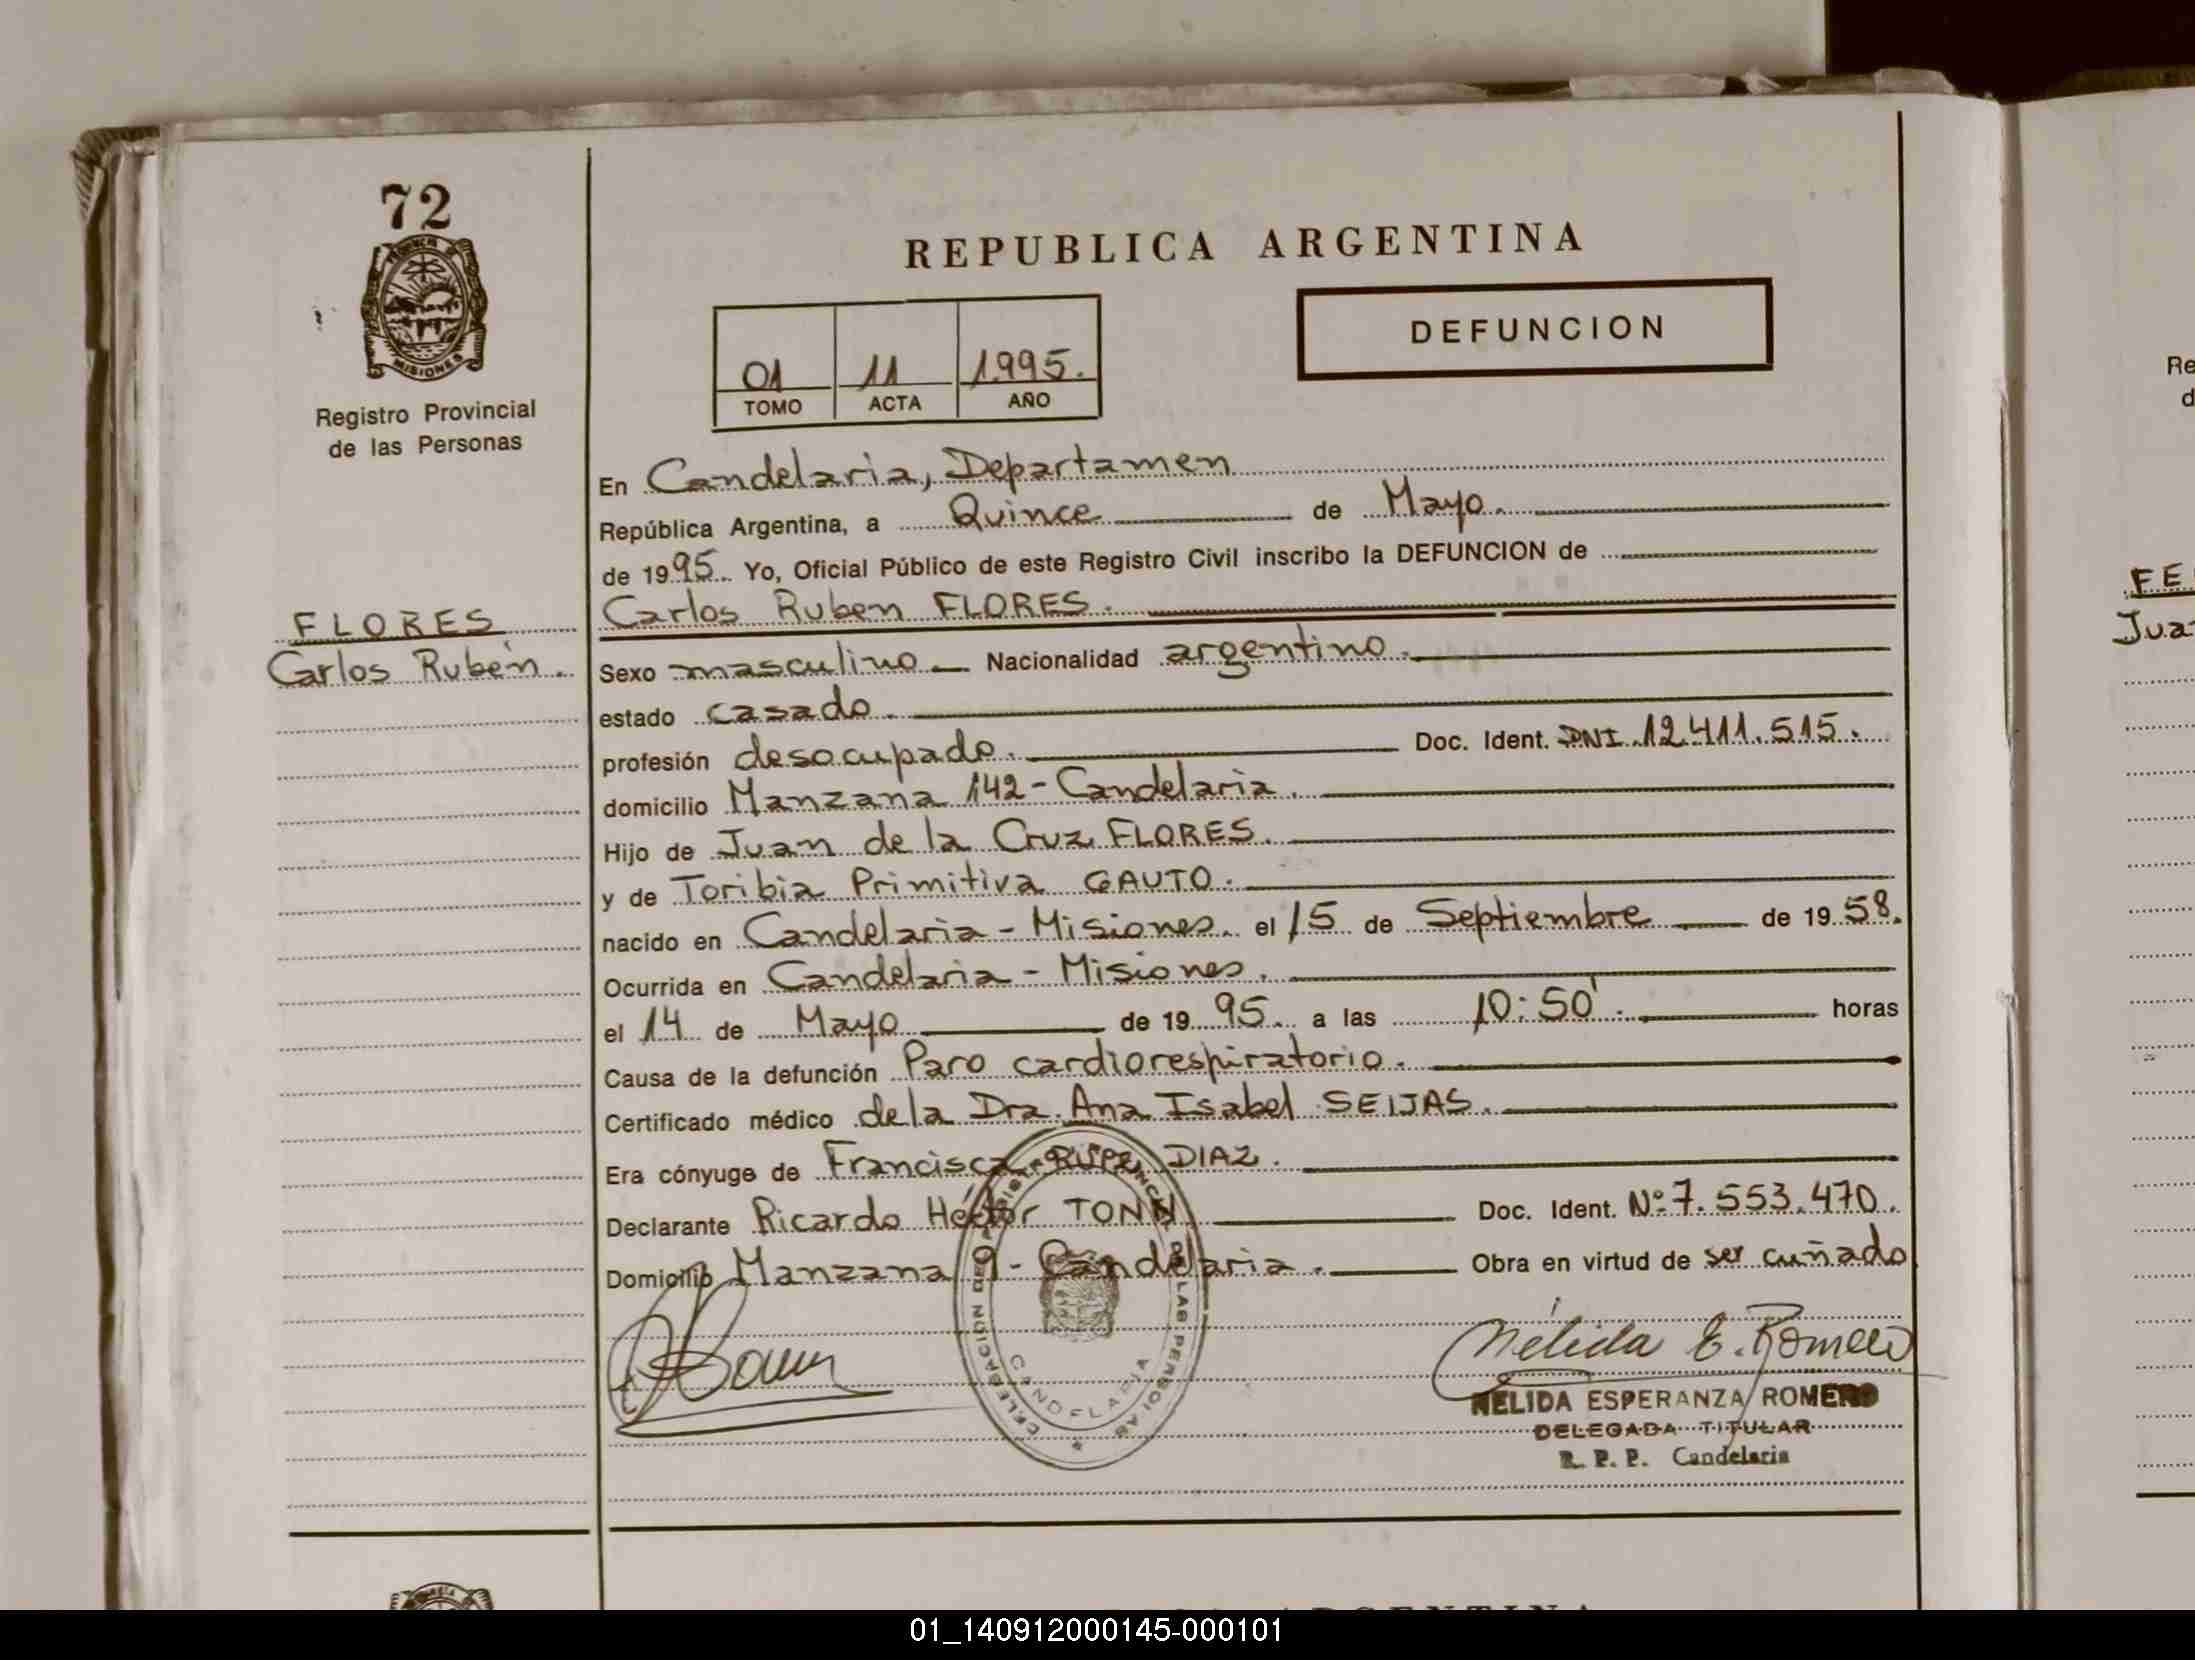 72
PROVINCIA DE
MISIONES
Registro Provincial
de las Personas
REPUBLICA ARGENTINA
DEFUNCION
01 11 1995.
TOMO ACTA AÑO
En Candelaria, Departamen
República Argentina, a Quince de Mayo.
de 1995. Yo, Oficial Público de este Registro Civil inscribo la DEFUNCION de
FLORES
Carlos Ruben FLORES.
Carlos Rubén.
Sexo masculino Nacionalidad argentino.
estado casado.
profesión desocupado. Doc. Ident. DNI 12.411.515.
domicilio Manzana 142 - Candelaria.
Hijo de Juan de la Cruz FLORES.
y de Toribia Primitiva GAUTO.
nacido en Candelaria - Misiones. el 15 de Septiembre de 1958.
Ocurrida en Candelaria - Misiones.
el 14 de Mayo de 1995. a las 10:50'. horas
Causa de la defunción Paro cardiorespiratorio.
Certificado médico de la Dra. Ana Isabel SEIJAS.
Era cónyuge de Francisca DIAZ.
Declarante Ricardo Héctor TONN Doc. Ident. Nº 7.553.470.
Domicilio Manzana 9 - Candelaria. Obra en virtud de ser cuñado
DE LAS PERSONAS
CANDELARIA
Nélida E. Romero
NELIDA ESPERANZA ROMERO
DELEGADA TITULAR
R. P. P. Candelaria
Re
d
FE
Jua
01_140912000145-000101